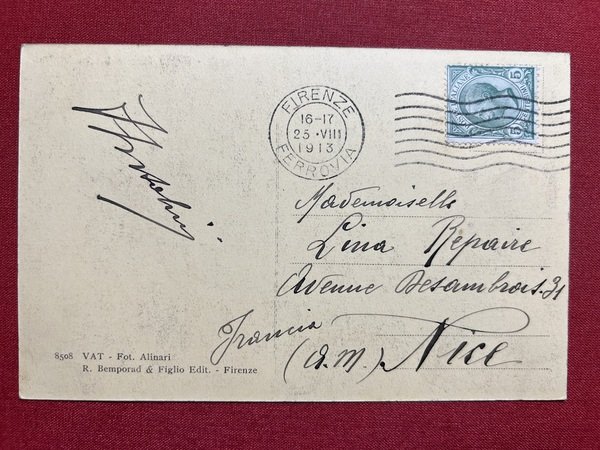 FIRENZE
16-17
25·VIII
1913
FERROVIA
5 5
Mademoiselle
Lina Repaire
Avenue Desambrois. 31
Francia
(A.M.) Nice
8508 VAT - Fot. Alinari
R. Bemporad & Figlio Edit. - Firenze